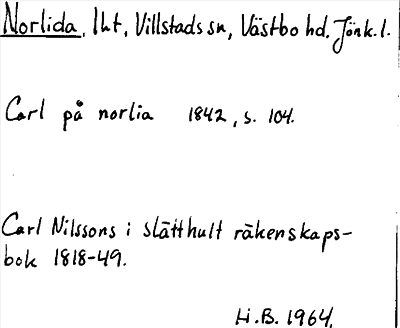 Norlida, lht, Villstads sn, Västbo hd. Jönk. l.
Carl på norlia 1842, s. 104.
Carl Nilssons i slätthult räkenskaps-
bok 1818-49.
H.B. 1964.